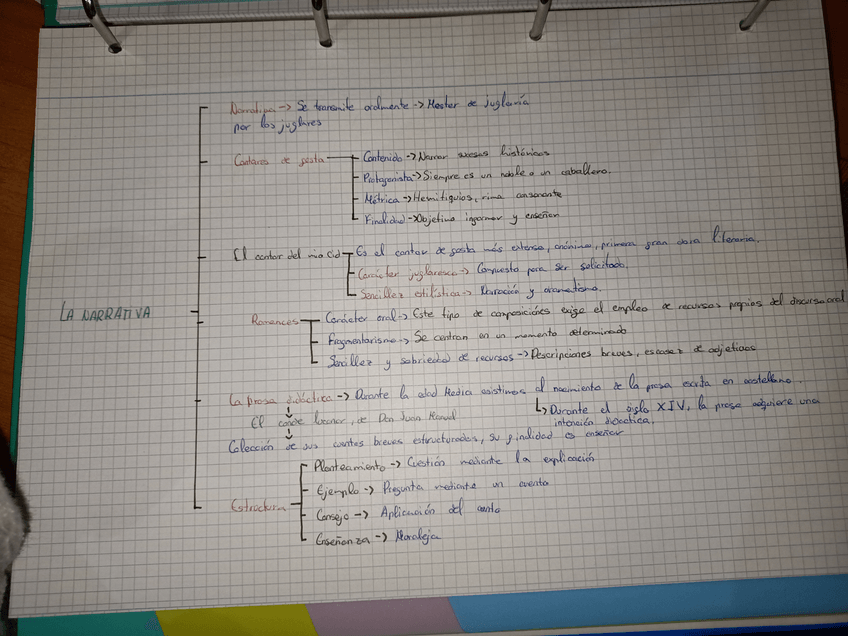 LA NARRATIVA
Narrativa -> Se transmite oralmente -> Mester de juglaría
por los juglares
Cantares de gesta
Contenido -> Narrar sucesos históricos
Protagonista -> Siempre es un noble o un caballero.
Métrica -> Hemitiquios, rima consonante
Finalidad -> Objetivo informar y enseñar
El cantar del mio Cid
Es el cantar de gesta más extenso, anónimo, primera gran obra literaria.
Carácter juglaresco -> Compuesto para ser solicitado.
Sencillez estilística -> Narración y dramatismo.
Romances
Carácter oral -> Este tipo de composiciones exige el empleo de recursos propios del discurso oral
Fragmentarismo -> Se centran en un momento determinado
Sencillez y sobriedad de recursos -> Descripciones breves, escasez de adjetivos
La prosa didáctica -> Durante la edad Media asistimos al nacimiento de la prosa escrita en castellano.
El conde lucanor, de Don Juan Manuel
Durante el siglo XIV, la prosa adquiere una
intención didactica.
Colección de sus cuentos breves estructurados, su finalidad es enseñar
Estructura
Planteamiento -> Cuestión mediante la explicación
Ejemplo -> Pregunta mediante un cuento
Consejo -> Aplicación del cuento
Enseñanza -> Moraleja